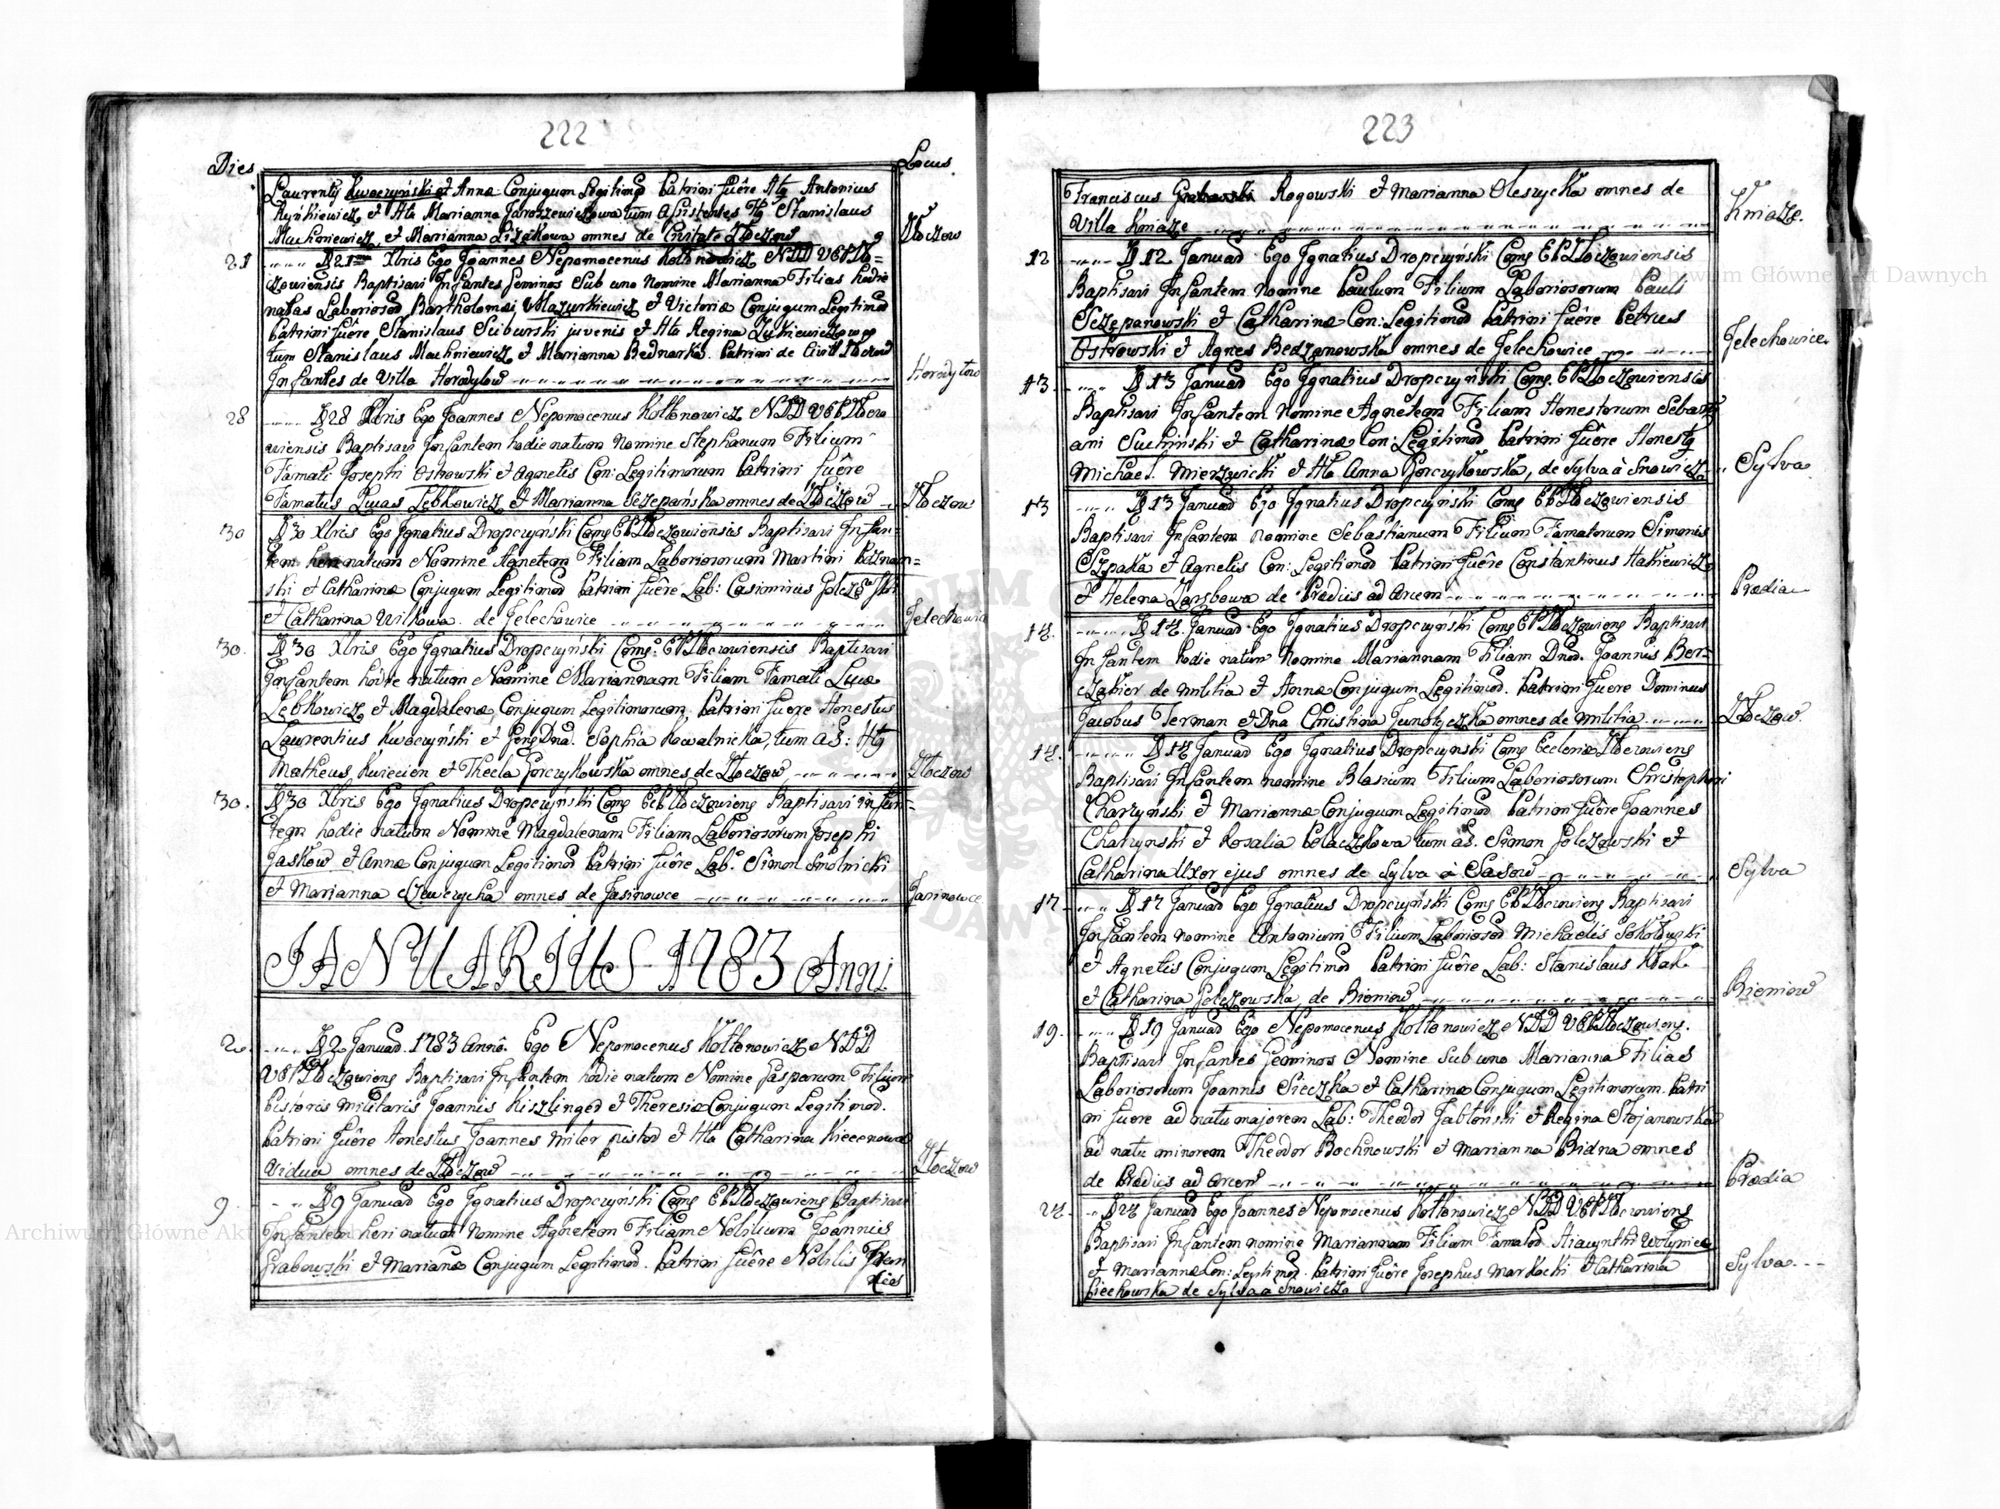 222
Dies
Locus
Laurenty Kwaczyński et Annæ Conjugum Legitimoȓ Patrini fuêre Hŋ Antonius
Rynkiewicz et Hta Marianna Jaroszewiczowa tum assistentes Hŋ Stanislaus
Muchniewicz et Marianna Lizakowa omnes de Civitate Złoczow
Złoczow
21 D 21ma Xbris Ego Joannes Nepomocenus Kołtonowicz NDD VEPZło=
czowiensis Baptisavi Infantes Geminos Sub uno Nomine Marianna Filias hodie
natas Laboriosoȓ Bartholomæi Mazurkiewicz et Victoriæ Conjugum Legitimoȓ
Patrini fuêre Stanislaus Sciburski juvenis et Hta Regina
tum Stanislaus Muchniewicz et Marianna Bednarka. Patrini de Civitt Złoczow
Infantes de Villa Horodyłow
Horodyłow
28 D 28 Xbris Ego Joannes Nepomocenus Kołtonowicz NDD VEPZłoczo
wiensis Baptisavi Infantem hodie natum Nomine Stephanum Filium
Famati Josephi Ostrowski et Agnetis Con: Legitimorum Patrini fuêre
Famatus Lucas Lebkowicz et Marianna Sczepańska omnes de Złoczow
Złoczow
30 D 30 Xbris Ego Ignatius Dropczyński Comŋ EPZłoczowiensis Baptisavi Infan=
tem heri natum Nomine Agnetem Filiam Laboriosorum Martini
ski et Catharinæ Conjugum Legitimoȓ Patrini fuêre Lab: Casimirus
et Catharina Wilkowa de Jelechowice
Jelechowice
30. D 30 Xbris Ego Ignatius Dropczyński Comŋ: EPZłoczowiensis Baptisavi
Infantem hodie natum Nomine Mariannam Filiam Famati Lucæ
Lebkowicz et Magdalenæ Conjugum Legitimorum Patrini fuere Honestus
Laurentius Kwaczyński et GenŋDna. Sophia Kowalnicka, tum as: Hŋ
Matheus Kwiecien et Thecla Gorczykowska omnes de Złoczow
Złoczow
30. D 30 Xbris Ego Ignatius Dropczyński Comŋ EcPZłoczowienŋ Baptisavi infan=
tem hodie natum Nomine Magdalenam Filiam Laboriosorum Josephi
Jaskow et Annæ Conjugum Legitimoȓ Patrini fuêre Lab. Simon Smolnicki
et Marianna Szewczycha omnes de Jasinowce
Jasinowce
IANUARIUS 1783 Anni
2. D 2 Januaȓ. 1783 Annô. Ego Nepomocenus Kołtonowicz NDD
VEPZłoczowienŋ Baptisavi Infantem hodie natum Nomine Gasparum Filium
Pistoris Militaris Joannis Kiszlinger et Theresiæ Conjugum Legitimoȓ.
Patrini fuêre Honestus Joannes Miler pistor et Hta Catharina
Vidua omnes de Złoczow
Złoczow
9. D 9 Januaȓ Ego Ignatius Dropczyński Comŋ EPZłoczowienŋ Baptisavi
Infantem heri natum Nomine Agnetem Filiam Nobilium Joannis
Grabowski et Marianæ Conjugum Legitimoȓ. Patrini fuêre Nobilis Fran
cisc
223
Franciscus Rogowski et Marianna Oleszycka omnes de
Villa Kniaze
Kniaze.
12 D 12 Januaȓ Ego Ignatius Dropczyński Comŋ EPZłoczowiensis
Baptisavi Infantem Nomine Paulum Filium Laboriosorum Pauli
Sczepanowski et Catharinæ Con: Legitimoȓ Patrini fuêre Petrus
Ostrowski et Agnes Bedzanowska omnes de Jelechowice
Jelechowice.
13. D 13 Januaȓ Ego Ignatius Dropczyński Comŋ. EPZłoczowiensis
Baptisavi Infantem Nomine Agnetem Filiam Honestorum Sebasti
ani Suchiński et Catharinæ Con: Legitimoȓ Patrini fuêre Honestŋ
Michael Mierzwicki et Hta Anna Gorczykowska, de Sylva à Snowicz
Sylva.
13 D 13 Januaȓ Ego Ignatius Dropczyński Comŋ EPZłoczowiensis
Baptisavi Infantem Nomine Sebastianum Filium Famatorum Simonis
Szpaka et Agnetis Con: Legitimoȓ Patrini fuêre Constantinus Hatkiewicz
et Helena de Prædiis ad Arcem
Prædia
14. D 14. Januaȓ Ego Ignatius Dropczyński Comŋ EPZłoczowienŋ Baptisavi
Infantem hodie natum Nomine Mariannam Filiam Dnoȓ. Joannis Ber=
czabier de Militia et Annæ Conjugum Legitimoȓ. Patrini fuere Dominus
Jacobus Terman et Dna Christina omnes de Militia
Złoczow.
14. D 14 Januaȓ Ego Ignatius Dropczyński Comŋ Ecclesiæ Złoczowienŋ
Baptisavi Infantem nomine Blasium Filium Laboriosorum Christophori
Charzyński et Mariannæ Conjugum Legitimoȓ Patrini fuêre Joannes
Charzynski et Rosalia Polaczkowa tum as. Simon Golczowski et
Catharina Uxor ejus omnes de Sylva à Sasow
Sylva
17. D 17 Januaȓ Ego Ignatius Dropczyński Comŋ EPZłoczowienŋ Baptisavi
Infantem nomine Antonium Filium Laboriosoȓ Michaelis Sokołowski
et Agnetis Conjugum Legitimoȓ Patrini fuêre Lab: Stanislaus Ktak
et Catharina Golczowska, de Bieniow
Bieniow
19. D 19 Januaȓ Ego Nepomocenus Kołtonowicz NDD VEPZłoczowienŋ.
Baptisavi Infantes Geminos Nomine Sub uno Marianna Filias
Laboriosorum Joannis Sieczka et Catharinæ Conjugum Legitimorum. Patri
ni fuere ad natu majorem Lab: Theodor Jabłoński et Regina Stojanowska
ad natu minorem Theodor Bochnowski et Marianna Bidna omnes
de Prædiis ad Arcem
Prædia
24. D 24 Januaȓ Ego Joannes Nepomocenus Kołtonowicz NDD VEPZłoczowienŋ
Baptisavi Infantem nomine Mariannam Filiam Famatoȓ Hiacynthi Wołyniec
et Mariannæ Con: Legitimoȓ. Patrini fuêre Josephus Markocki et Catharina
Piechowska de Sylva à Snowicz
Sylva
Archiwum Główne Akt Dawnych